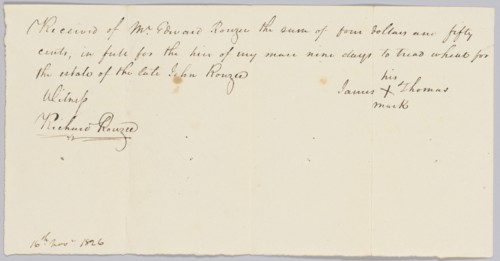 Received of Mr. Edward Rouzee the sum of four dollars and fifty
cents, in full for the hire of my mare nine days to tread wheat for
the estate of the late John Rouzee
his
James X Thomas
mark
Witness
Richard Rouzee
16th Novr 1826